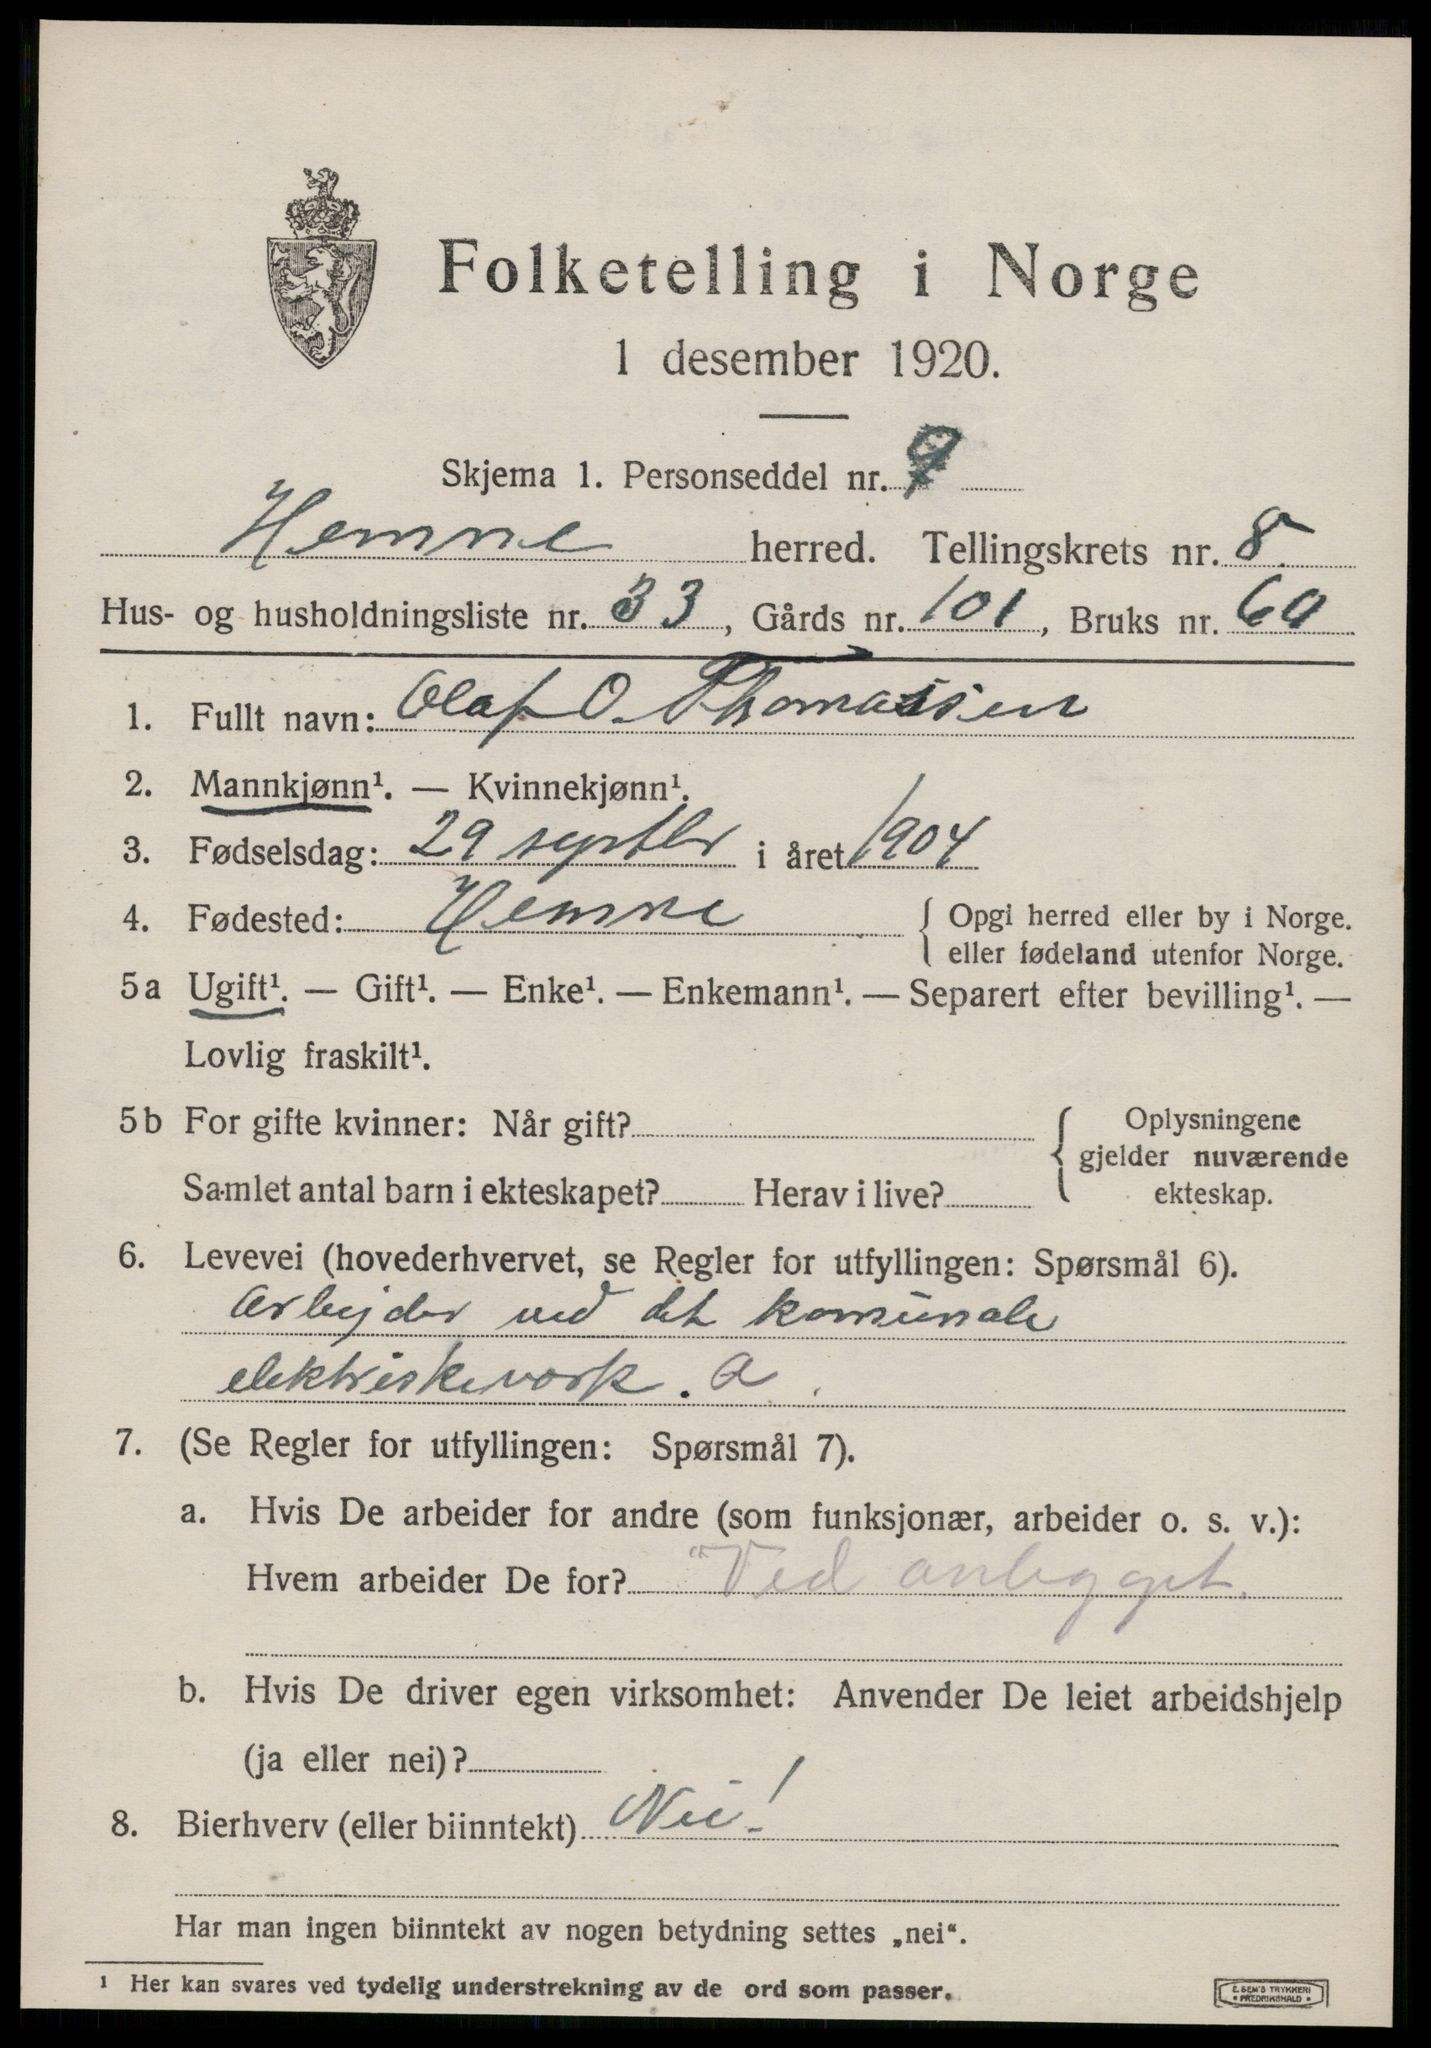 Folketelling i Norge
1 desember 1920.
Skjema 1. Personseddel nr. 9
Hemne herred. Tellingskrets nr. 8.
Hus- og husholdningsliste nr. 33, Gårds nr. 101, Bruks nr. 60
1. Fullt navn: Olaf O. Thomassen
2. Mannkjønn¹. — Kvinnekjønn¹.
3. Fødselsdag: 29 septbr i året 1904
4. Fødested: Hemne { Opgi herred eller by i Norge.
eller fødeland utenfor Norge.
5a Ugift¹. — Gift¹. — Enke¹. — Enkemann¹. — Separert efter bevilling¹. —
Lovlig fraskilt¹.
5b For gifte kvinner: Når gift? { Oplysningene
gjelder nuværende
Samlet antal barn i ekteskapet? Herav i live? ekteskap.
6. Levevei (hovederhvervet, se Regler for utfyllingen: Spørsmål 6).
Arbejder ved det komunale
elektriskeværk. a.
7. (Se Regler for utfyllingen: Spørsmål 7).
a. Hvis De arbeider for andre (som funksjonær, arbeider o. s. v.):
Hvem arbeider De for? "Ved anlegget.
b. Hvis De driver egen virksomhet: Anvender De leiet arbeidshjelp
(ja eller nei)?
8. Bierhverv (eller biinntekt) Nei!
Har man ingen biinntekt av nogen betydning settes „nei“.
¹ Her kan svares ved tydelig understrekning av de ord som passer.
E. SEM'S TRYKKERI
• FREDRIKSHALD •